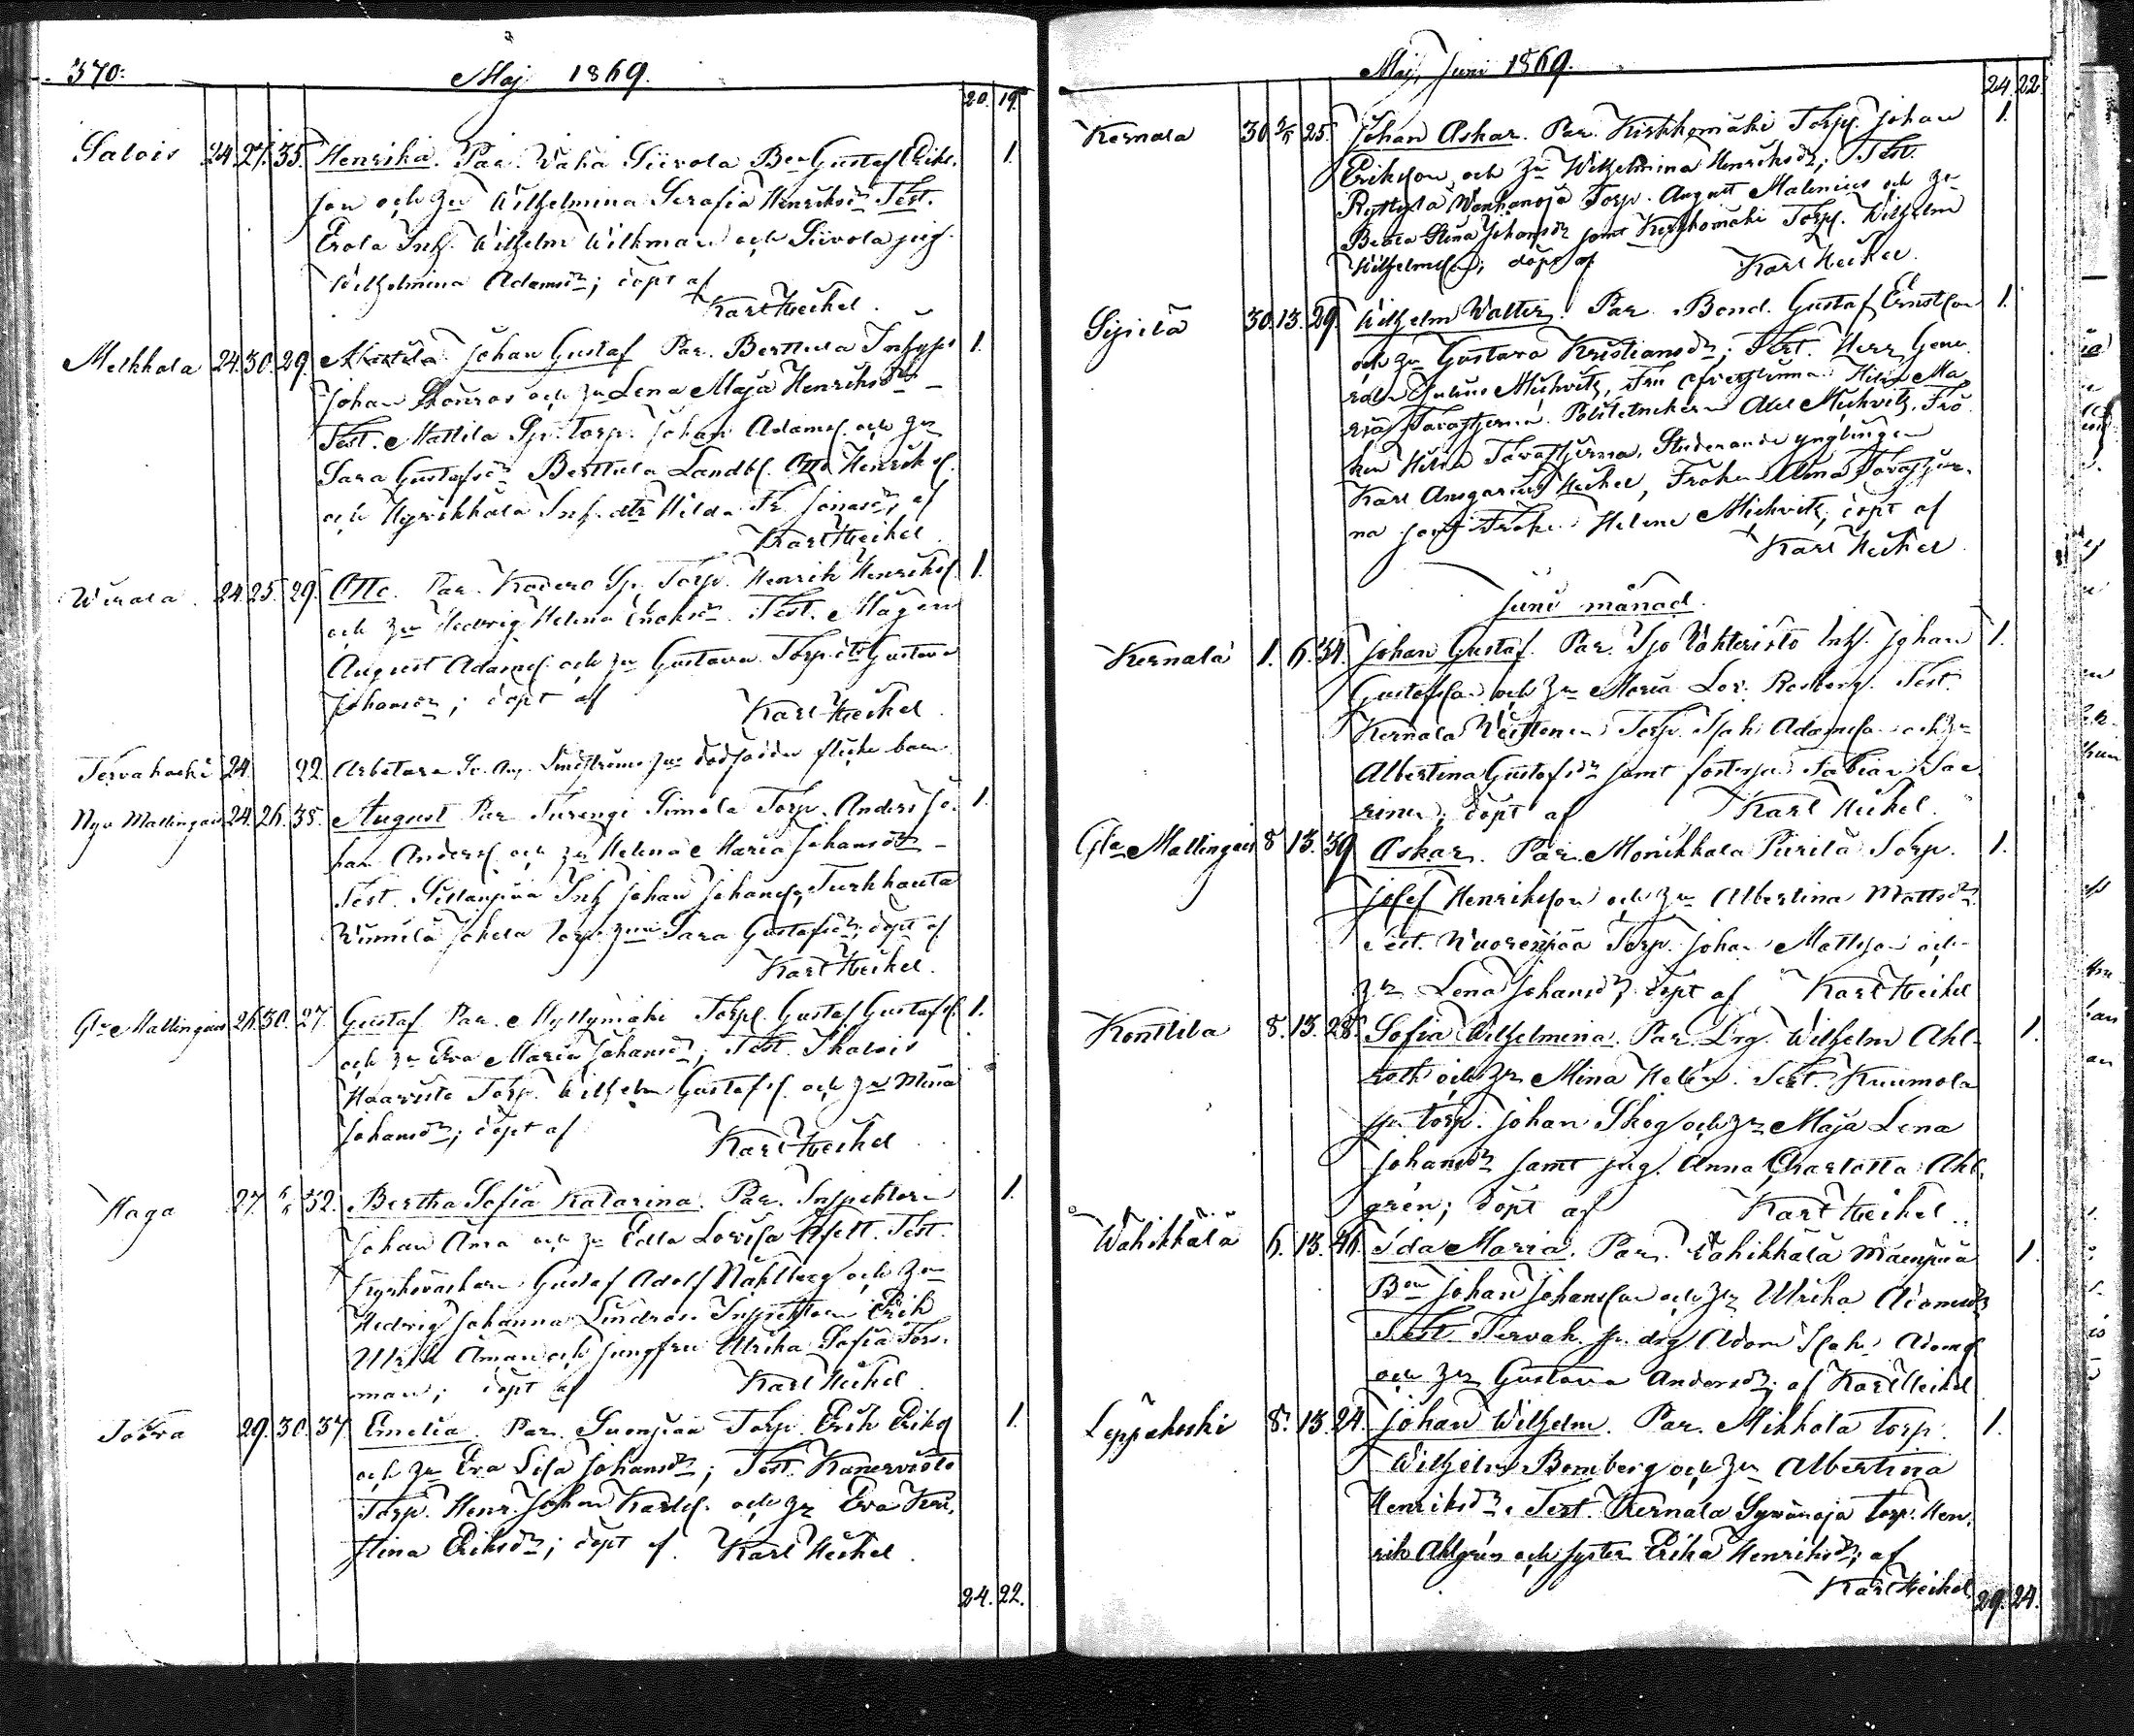 370.
Maj 1869.
20. 19.
Salois 24. 27. 35. Henrika. Par. Vähä Siivola Bn Gustaf Eriks-
son och hu Wilhelmina Serafia Henriksdr Test.
Erola Inh. Wilhelm Wilkman och Siivola pig.
Wilhelmina Adamsdr; döpt af
Karl Heikel.
1.
Melkkola 24. 30. 29. Johan Gustaf Par. Berttula Inhyses 1.
Johan och hu Lena Maja Henriksdr
Test. Mattila Sp. torp. Johan Adamss. och hu
Sara Gustafsdr Berttula Landb. Otto Henrikss.
och Hyrikkälä Inh. dtr Hilda Fr. Jonasdr, af
Karl Heikel.
Wiiala 24. 25. 29. Otto. Par. Torp. Henrik Henrikss. 1.
och hu Hedvig Helena Test. Mågen
August Adamss. och hu Gustava. Torp. dtr Gustava
Johansdr; döpt af Karl Heikel
Tervakoski 24. 22 Arbetare hus dödfödda flicke barn
Nya Mallingais 24. 26. 35. August Par. Turengi Simola Torp. Anders Jo- 1.
han Anderss. och hu Helena Maria Johansdr
Test. Sillanpää Inh. Johan Johanss. Turkhauta
Jokela torp. hun Sara Gustafsdr; döpt af
Karl Heikel.
Gla Mallingais 26. 30. 27 Gustaf Par. Myllymäki Torp. Gustaf Gustafss. 1.
och hu Eva Maria Johansdr; Test. Skalois
Haavisto Torp. Wilhelm Gustafss. och hu Mina
Johansdr; döpt af Karl Heikel
Haga 27. 32. Bertha Sofia Katarina. Par. Inspektorn 1.
Johan och hu Edla Lovisa Test.
Gustaf Adolf Nählberg och hu
Hedvig Johanna Lindroos Inspektorn Erik
Ulrik Åman och jungfru Ulrika Sofia Fors-
man; döpt af Karl Heikel
29. 30. 37 Emelia. Par. Suonpää Torp. Erik Erikss. 1.
och hu Eva Lisa Johansdr; Test. Kanervisto
Torp. Henr. Johan Karlss. och hu Eva Kri-
stina Eriksdr; döpt af Karl Heikel.
24. 22.
Maj, Juni 1869.
24. 22
Kernala 30. 25. Johan Askar. Par. Kirkkomäki Torp. Johan 1.
Eriksson och hu Wilhelmina Henriksdr; Test.
Ryttylä Wanhanoja Torp. August Malenius och hu
Stina Johansdr samt Kirkkomäki Torp. Wilhelm
Wilhelmss.; döpt af Karl Heikel.
30. 13. 29. Wilhelm Walter. Par. Bond. Gustaf Ernstson 1.
och hu Gustava Kristiansdr; Test. Herr Gene-
ralen Julius Mickvitz, Fru Öfverstinna Ma
ria Tavaststjerna. Politeknikern Axel Mickvitz, Frö
ken Hilda Tavaststjerna, Studerande ynglingen
Karl Ansgarius Heikel, Fröken Alma Tavaststjer-
na samt Fröken Helene Mickvitz; döpt af
Karl Heikel
Juni månad.
Kernala 1. 6. 34. Johan Gustaf. Par. Vähteristö Inh. Johan 1.
Gustafsson och hu Maria Lov. Rosberg. Test.
Kernala Torp. Isak Adamsson och hu
Albertina Gustafsdr samt fosterson Fabian Saa
rinen; döpt af Karl Heikel.
Gla Mallingais 8 13. 39 Askar. Par. Monikkala Piirilä Torp. 1.
Josef Henriksson och hu Albertina Mattsdr
Test. Wuorenpää Torp. Johan Mattsson och
hu Lena Johansdr döpt af Karl Heikel
Konttila 8. 13. 28. Sofia Wilhelmina. Par. Drg. Wilhelm Ahl- 1.
roth och hu Mina Helén. Test. Kuumola
sp. torp. Johan Skog och hu Maja Lena
Johansdr samt pig. Anna Charlotta Ahl-
grén; döpt af Karl Heikel
Wähikkälä 6. 13. 46. Ida Maria. Par. Vähikkälä Mäenpää 1.
Bn Johan Johansson och hu Ulrika Adamsdr
Test. Tervak. sp. drg Adam Isak Adamss.
och hu Gustava Andersdr; af Karl Heikel
Leppäkoski 8. 13. 24. Johan Wilhelm. Par. Mikkola torp. 1.
Wilhelm Bomberg och hu Albertina
Henriksdr. Test. Kernala Syvänoja torp. Hen-
rik Ahlgrén och syster Erika Henriksdr; af
Karl Heikel
29. 24.